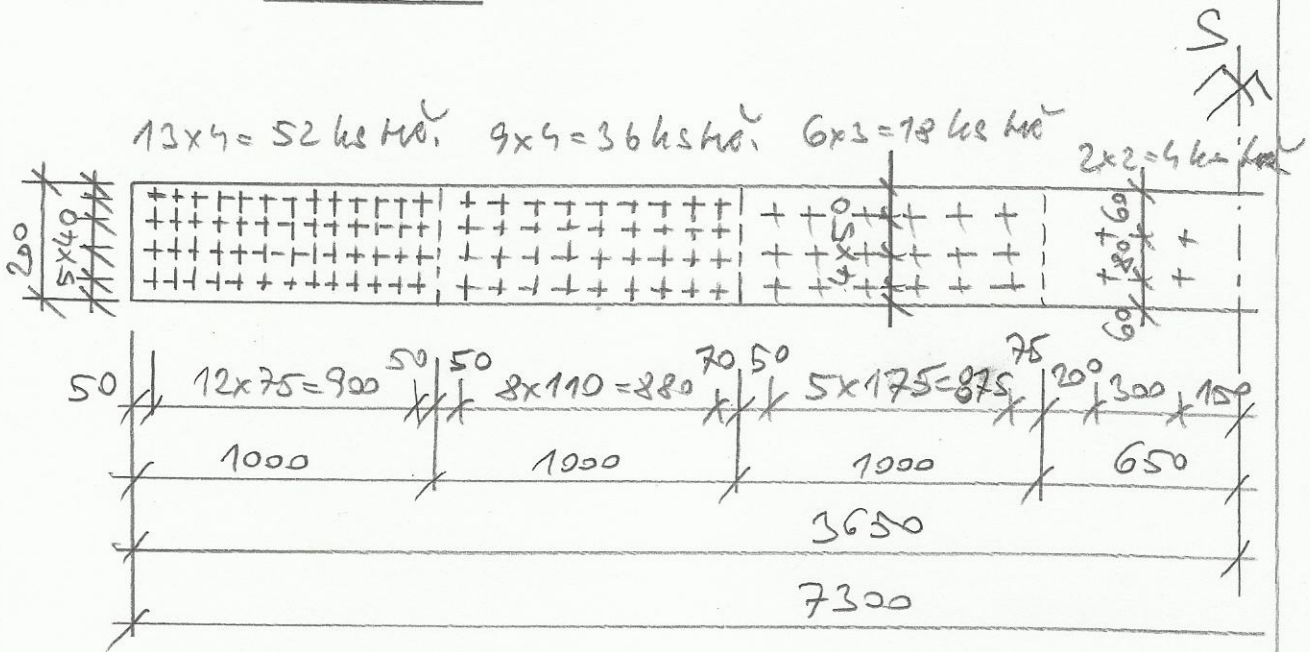 S
13x4=52 ks hř. 9x4=36 ks hř. 6x3=18 ks hř
2x2=4 ks
200
5x40
4x50
60
80
60
50 12x75=900 50 50 8x110=880 70 50 5x175=875 75 200 300 150
1000 1000 1000 650
3650
7300